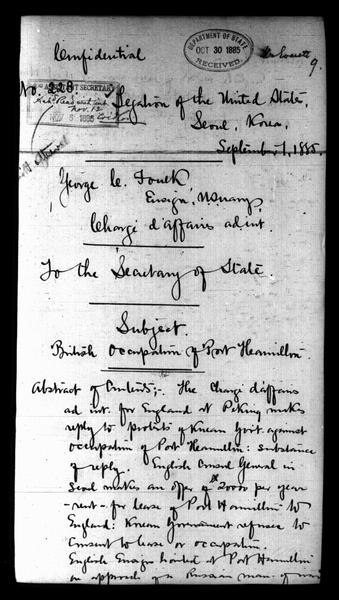 Confidential
DEPARTMENT OF STATE
OCT 30 1885
RECEIVED.
9.
No. 228
SECRETARY
NOV 5 1885
Legation of the United States,
Seoul, Korea,
September 1, 1885.
George C. Foulk,
Ensign, U.S. Navy,
Chargé d'affaires ad int.
To the Secretary of State.
Subject.
British Occupation of Port Hamilton.
Abstract of Contents;- The Chargé d'affaires
ad int. for England at Peking makes
reply to protests of Korean Gov't against
occupation of Port Hamilton: substance
of reply. English Consul General in
Seoul makes an offer of $2000 per year
-rent- for lease of Port Hamilton to
England: Korean Government refuses to
consent to lease or occupation.
English Ensign hoisted at Port Hamilton
on approach of a Russian man-of-war